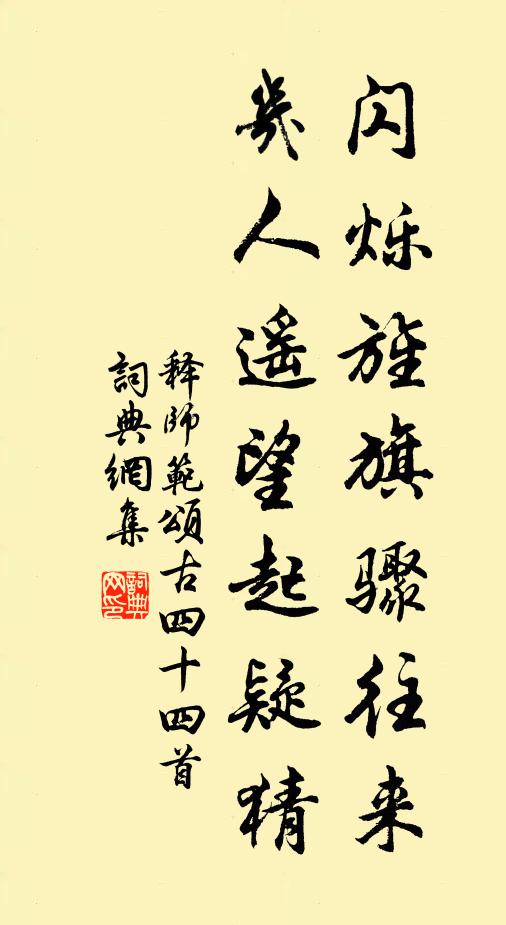 闪烁旌旗骤往来
几人遥望起疑猜
释師範頌古四十四首
詞典網集
詞典网印